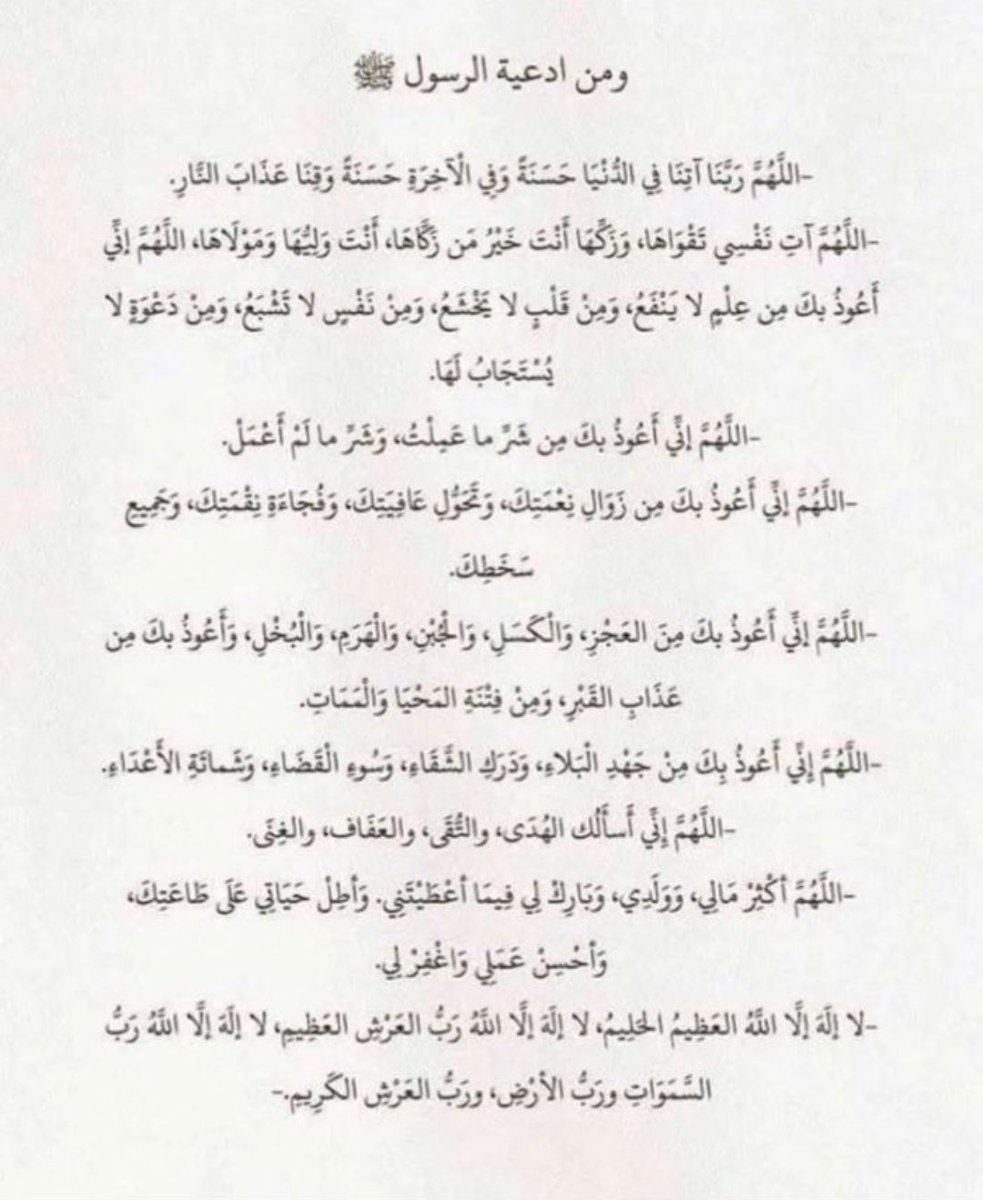 ومن ادعية الرسول ﷺ
-اللَّهُمَّ رَبَّنَا آتِنَا فِي الدُّنْيَا حَسَنَةً وَفِي الْآخِرَةِ حَسَنَةً وَقِنَا عَذَابَ النَّارِ.
-اللَّهُمَّ آتِ نَفْسِي تَقْوَاهَا، وَزَكِّهَا أَنْتَ خَيْرُ مَن زَكَّاهَا، أَنْتَ وَلِيُّهَا وَمَوْلَاهَا، اللَّهُمَّ إنِّي
أَعُوذُ بكَ مِن عِلْمٍ لا يَنْفَعُ، وَمِنْ قَلْبٍ لا يَخْشَعُ، وَمِنْ نَفْسٍ لا تَشْبَعُ، وَمِنْ دَعْوَةٍ لا
يُسْتَجَابُ لَهَا.
-اللَّهُمَّ إنِّي أَعُوذُ بكَ مِن شَرِّ ما عَمِلْتُ، وَشَرِّ ما لَمْ أَعْمَلْ.
-اللَّهُمَّ إنِّي أَعُوذُ بكَ مِن زَوَالِ نِعْمَتِكَ، وَتَحَوُّلِ عَافِيَتِكَ، وَفُجَاءَةِ نِقْمَتِكَ، وَجَمِيعِ
سَخَطِكَ.
-اللَّهُمَّ إنِّي أَعُوذُ بكَ مِنَ العَجْزِ، وَالْكَسَلِ، وَالْجُبْنِ، وَالْهَرَمِ، وَالْبُخْلِ، وَأَعُوذُ بكَ مِن
عَذَابِ القَبْرِ، وَمِنْ فِتْنَةِ المَحْيَا وَالْمَمَاتِ.
-اللَّهُمَّ إِنِّي أَعُوذُ بِكَ مِنْ جَهْدِ الْبَلاءِ، وَدَرَكِ الشَّقَاءِ، وَسُوءِ الْقَضَاءِ، وَشَماتَةِ الأَعْدَاءِ.
-اللَّهُمَّ إِنِّي أَسأَلُك الهُدَى، والتُّقَى، والعَفَاف، والغِنَى.
-اللَّهُمَّ أكْثِرْ مَالِي، وَوَلَدِي، وَبَارِكْ لِي فِيمَا أعْطَيْتَنِي. وَأطِلْ حَيَاتِي عَلَى طَاعَتِكَ،
وَأحْسِنْ عَمَلِي وَاغْفِرْ لِي.
-لا إلَهَ إلَّا اللَّهُ العَظِيمُ الحَلِيمُ، لا إلَهَ إلَّا اللَّهُ رَبُّ العَرْشِ العَظِيمِ، لا إلَهَ إلَّا اللَّهُ رَبُّ
السَّمَوَاتِ ورَبُّ الأرْضِ، ورَبُّ العَرْشِ الكَرِيمِ.-